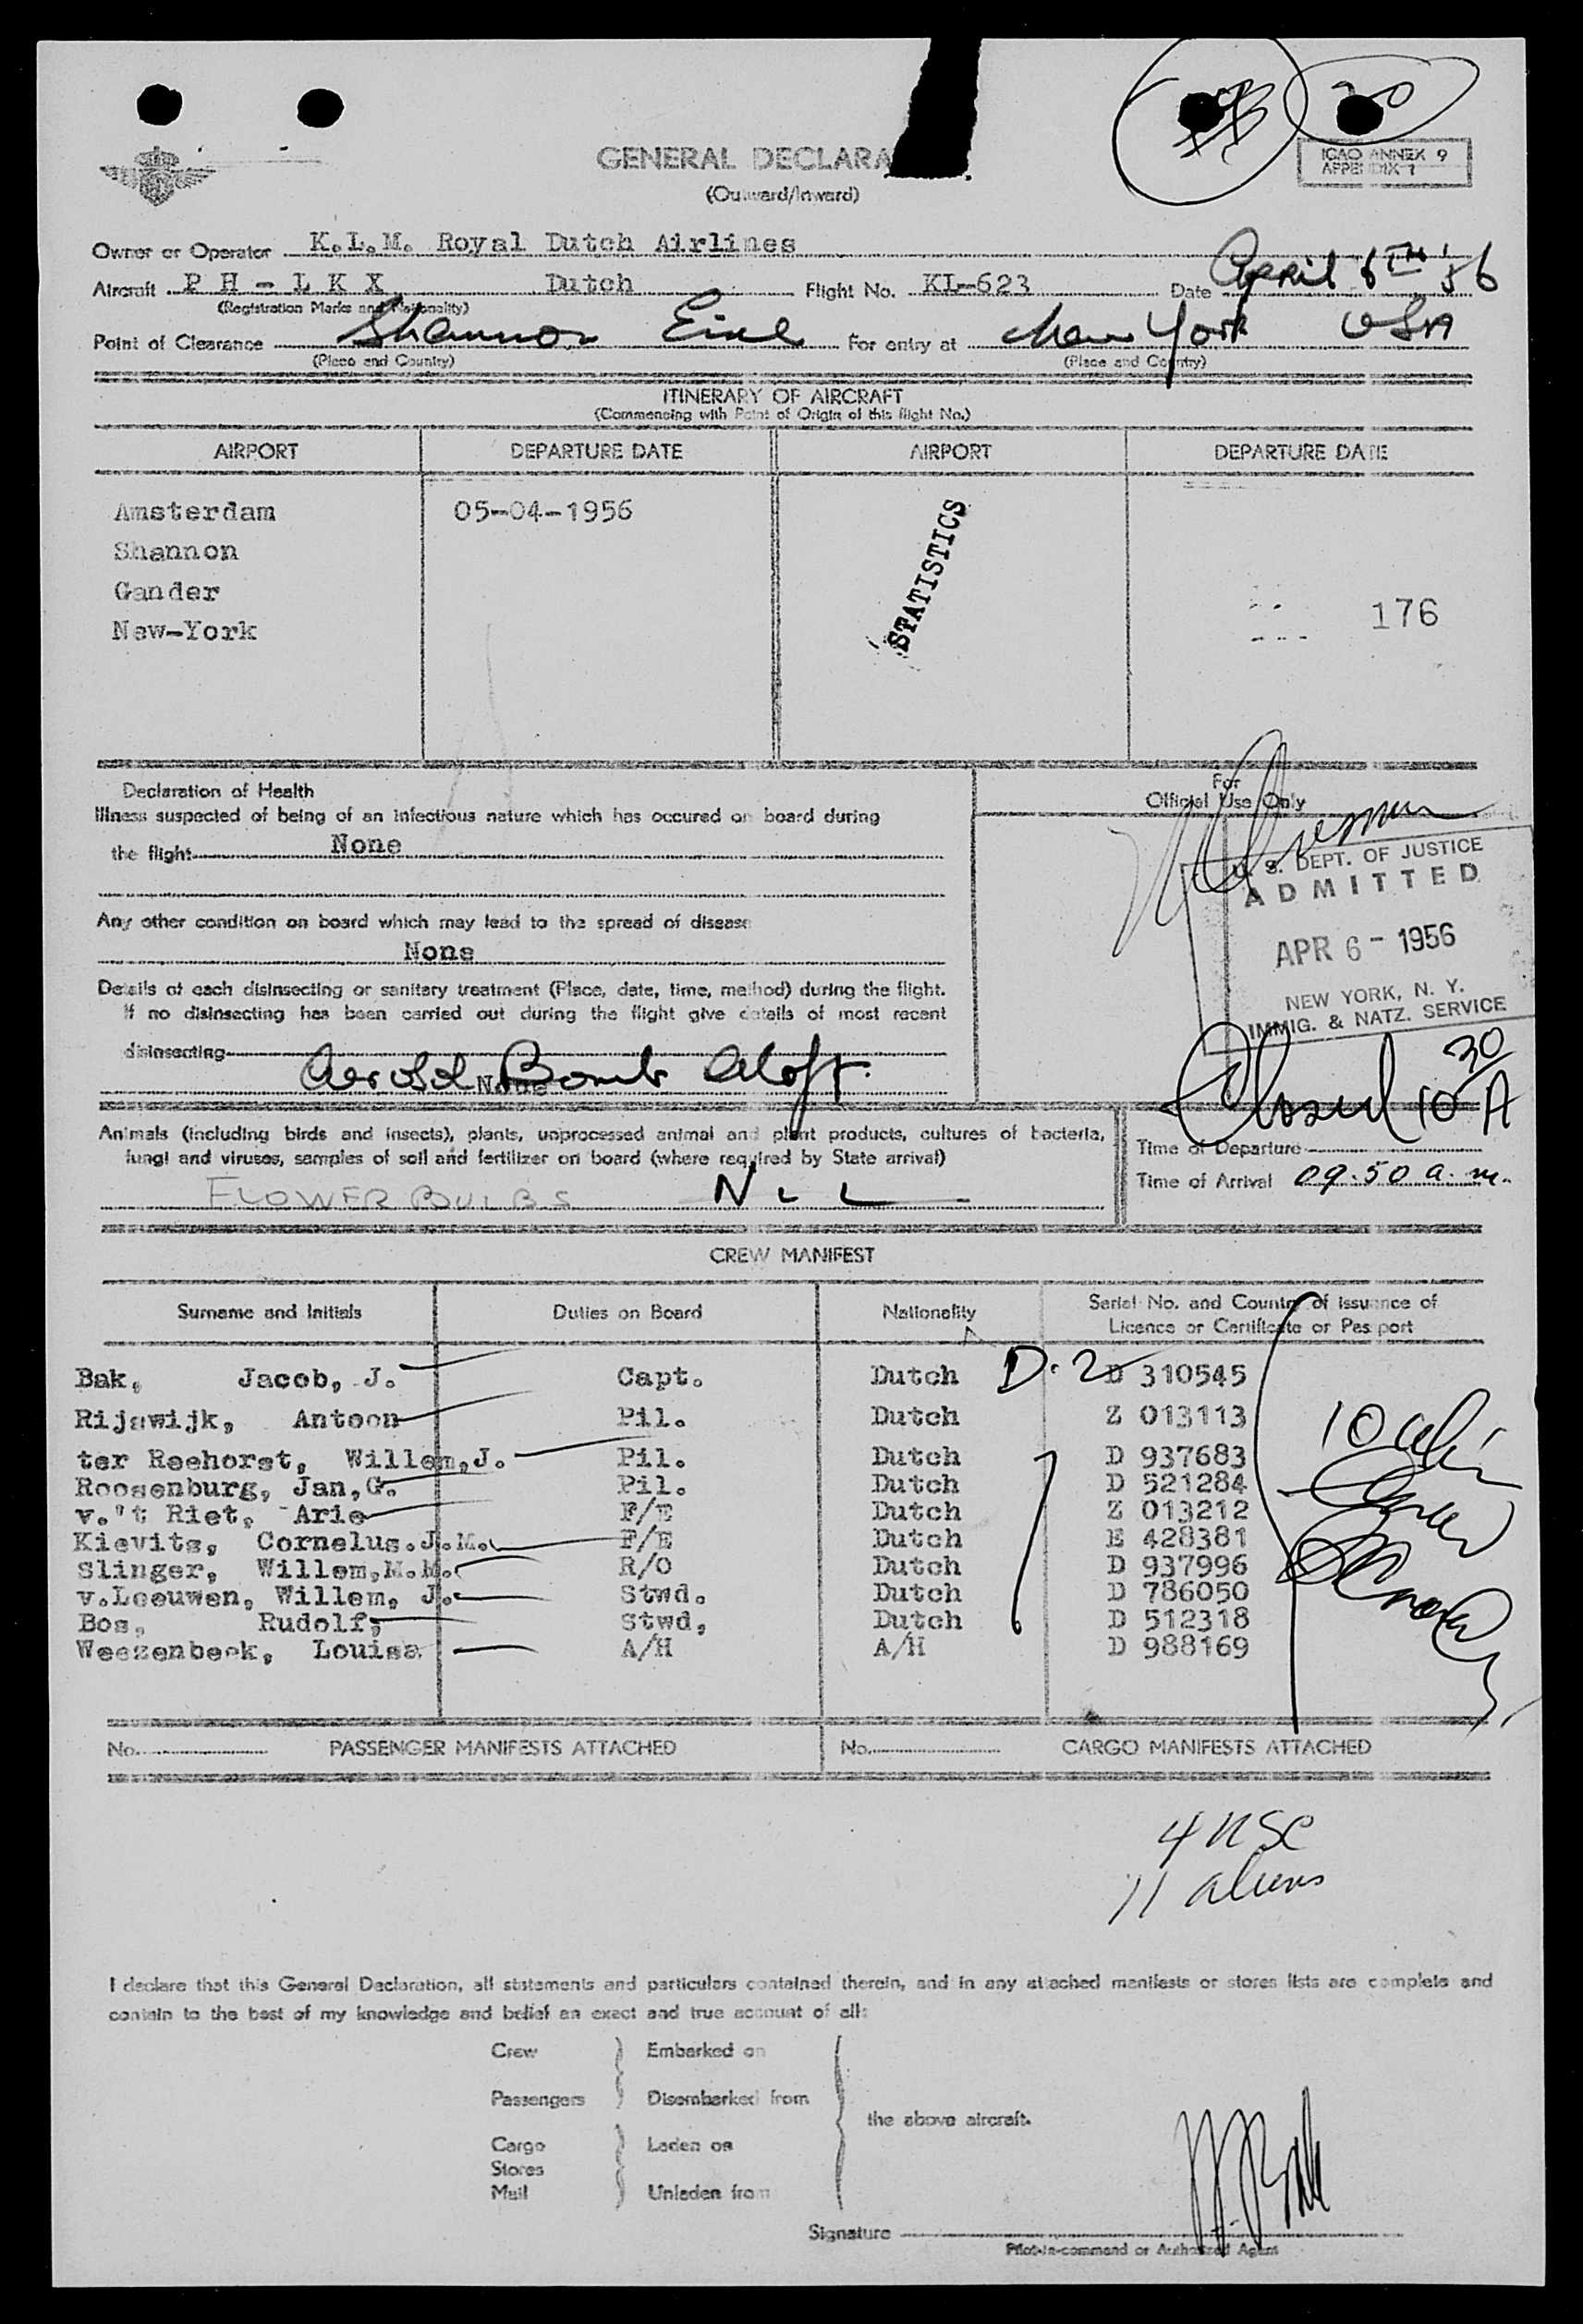 30
GENERAL DECLARA
(Outward/Inward)
ICAO ANNEX 9
APPENDIX 1
Owner or Operator K.L.M. Royal Dutch Airlines
Aircraft P H - L K X Dutch Flight No. KL-623 Date April 6TH '56
(Registration Marks and Nationality)
Point of Clearance Shannon Eire For entry at New York USA
(Place and Country) (Place and Country)
ITINERARY OF AIRCRAFT
(Commencing with Point of Origin of this flight No.)
AIRPORT DEPARTURE DATE AIRPORT DEPARTURE DATE
Amsterdam 05-04-1956
Shannon
Gander
New-York
STATISTICS
176
Declaration of Health
Illness suspected of being of an infectious nature which has occured on board during
the flight None
Any other condition on board which may lead to the spread of disease
None
Details of each disinsecting or sanitary treatment (Place, date, time, method) during the flight.
If no disinsecting has been carried out during the flight give details of most recent
disinsecting
Aerosol None Bomb Aloft.
For
Official Use Only
U. S. DEPT. OF JUSTICE
ADMITTED
APR 6 - 1956
NEW YORK, N. Y.
IMMIG. & NATZ. SERVICE
Closed 10 30 A
Animals (including birds and insects), plants, unprocessed animal and plant products, cultures of bacteria,
fungi and viruses, samples of soil and fertilizer on board (where required by State arrival)
FLOWER BULBS NIL
Time of Departure
Time of Arrival 09.50 a.m.
CREW MANIFEST
Surname and Initials Duties on Board Nationality Serial No. and Country of issuance of
Licence or Certificate or Passport
Bak, Jacob, J. Capt. Dutch D-2 D 310545
Rijswijk, Antoon Pil. Dutch Z 013113
ter Reehorst, Willem,J. Pil. Dutch D 937683
Roosenburg, Jan,G. Pil. Dutch D 521284
v.'t Riet, Arie F/E Dutch Z 013212
Kievits, Cornelus.J.M. F/E Dutch E 428381
Slinger, Willem,M.M. R/O Dutch D 937996
v.Leeuwen, Willem, J. Stwd. Dutch D 786050
Bos, Rudolf, Stwd, Dutch D 512318
Weezenbeek, Louise A/H A/H D 988169
No. PASSENGER MANIFESTS ATTACHED No. CARGO MANIFESTS ATTACHED
4 USC
11 aliens
I declare that this General Declaration, all statements and particulars contained therein, and in any attached manifests or stores lists are complete and
contain to the best of my knowledge and belief an exact and true account of all:
Crew Embarked on
Passengers Disembarked from
the above aircraft.
Cargo Laden on
Stores
Mail Unladen from
Signature
Pilot-in-command or Authorized Agent